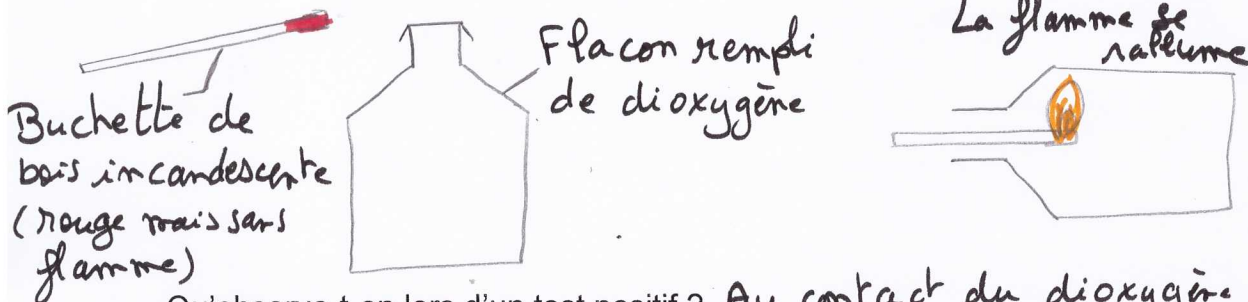 Buchette de
bois incandescente
(rouge mais sans
flamme)
Flacon rempli
de dioxygène
La flamme se
rallume
Qu'observe-t-on lors d'un test positif ? Au contact du dioxygène